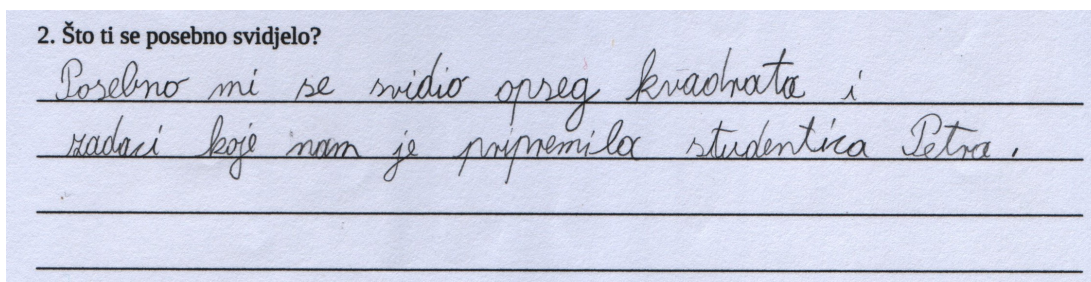 2. Što ti se posebno svidjelo?
Posebno mi se svidio opseg kvadrata i
zadaci koje nam je pripremila studentica Petra.